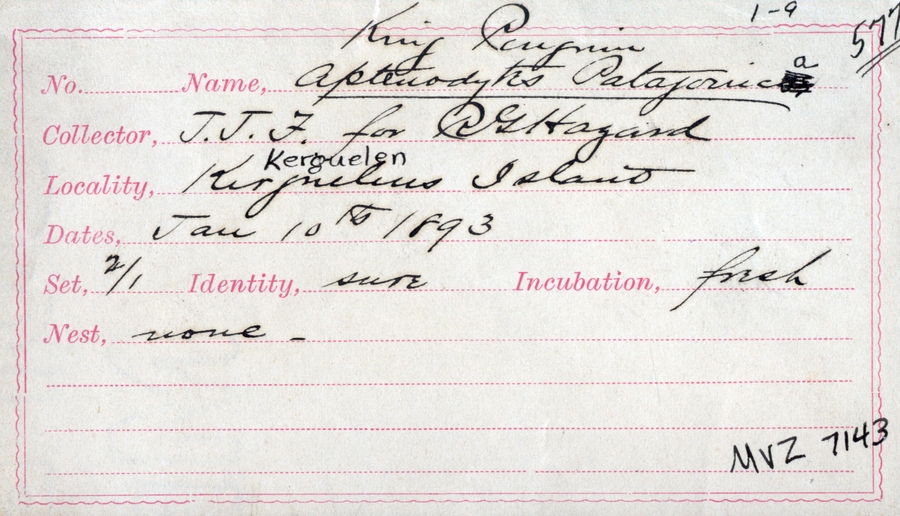 1-9
577
King Penguin
No. Name, Aptenodytes Patagonica
Collector, J.J.F. for R G Hazard
Kerguelen
Locality, Kerguelens Island
Dates, Jan 10th 1893
Set, 2/1 Identity, sure Incubation, fresh
Nest, none -
MVZ 7143